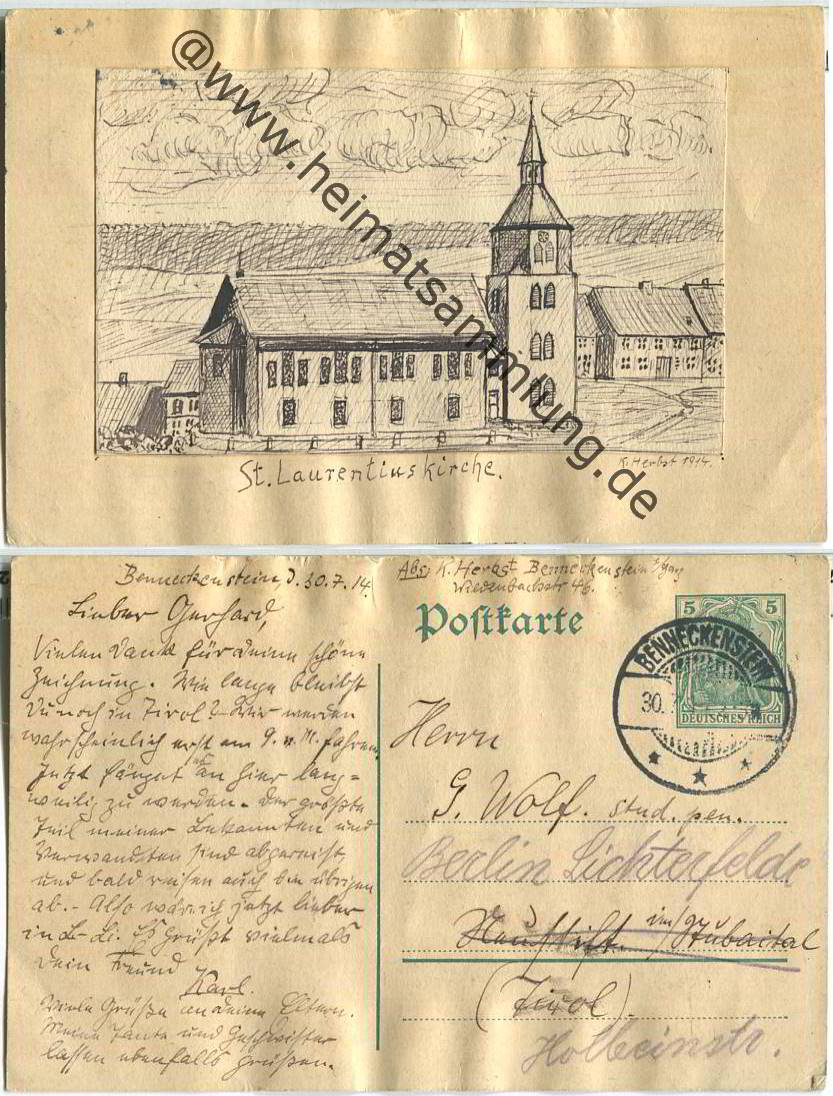 @www.heimatsammlung.de
St. Laurentiuskirche.
K. Herbst 1914.
Benneckenstein, d. 30.7.14.
Lieber Gerhard,
Vielen Dank für deine schöne
Zeichnung. Wie lange bleibst
Du noch in Tirol? Wir werden
wahrscheinlich erst am 9. n. M. fahren.
Jetzt fängt es an hier lang=
weilig zu werden. Der größte
Teil meiner Bekannten und
Verwandten sind abgereist,
und bald reisen auch die übrigen
ab. - Also wär ich jetzt lieber
in L-Li. Es grüßt vielmals
Dein Freund
Karl.
Viele Grüße an deine Eltern.
Meine Tante und Geschwister
lassen ebenfalls grüßen.
Abs: K. Herbst Benneckenstein
Wiedenbachstr 46.
Postkarte
5 5
DEUTSCHES REICH
BENNECKENSTEIN
30.7
Herrn
G. Wolf. stud.
Berlin Lichterfelde
Neustift im Stubaital
(Tirol)
Holbeinstr.